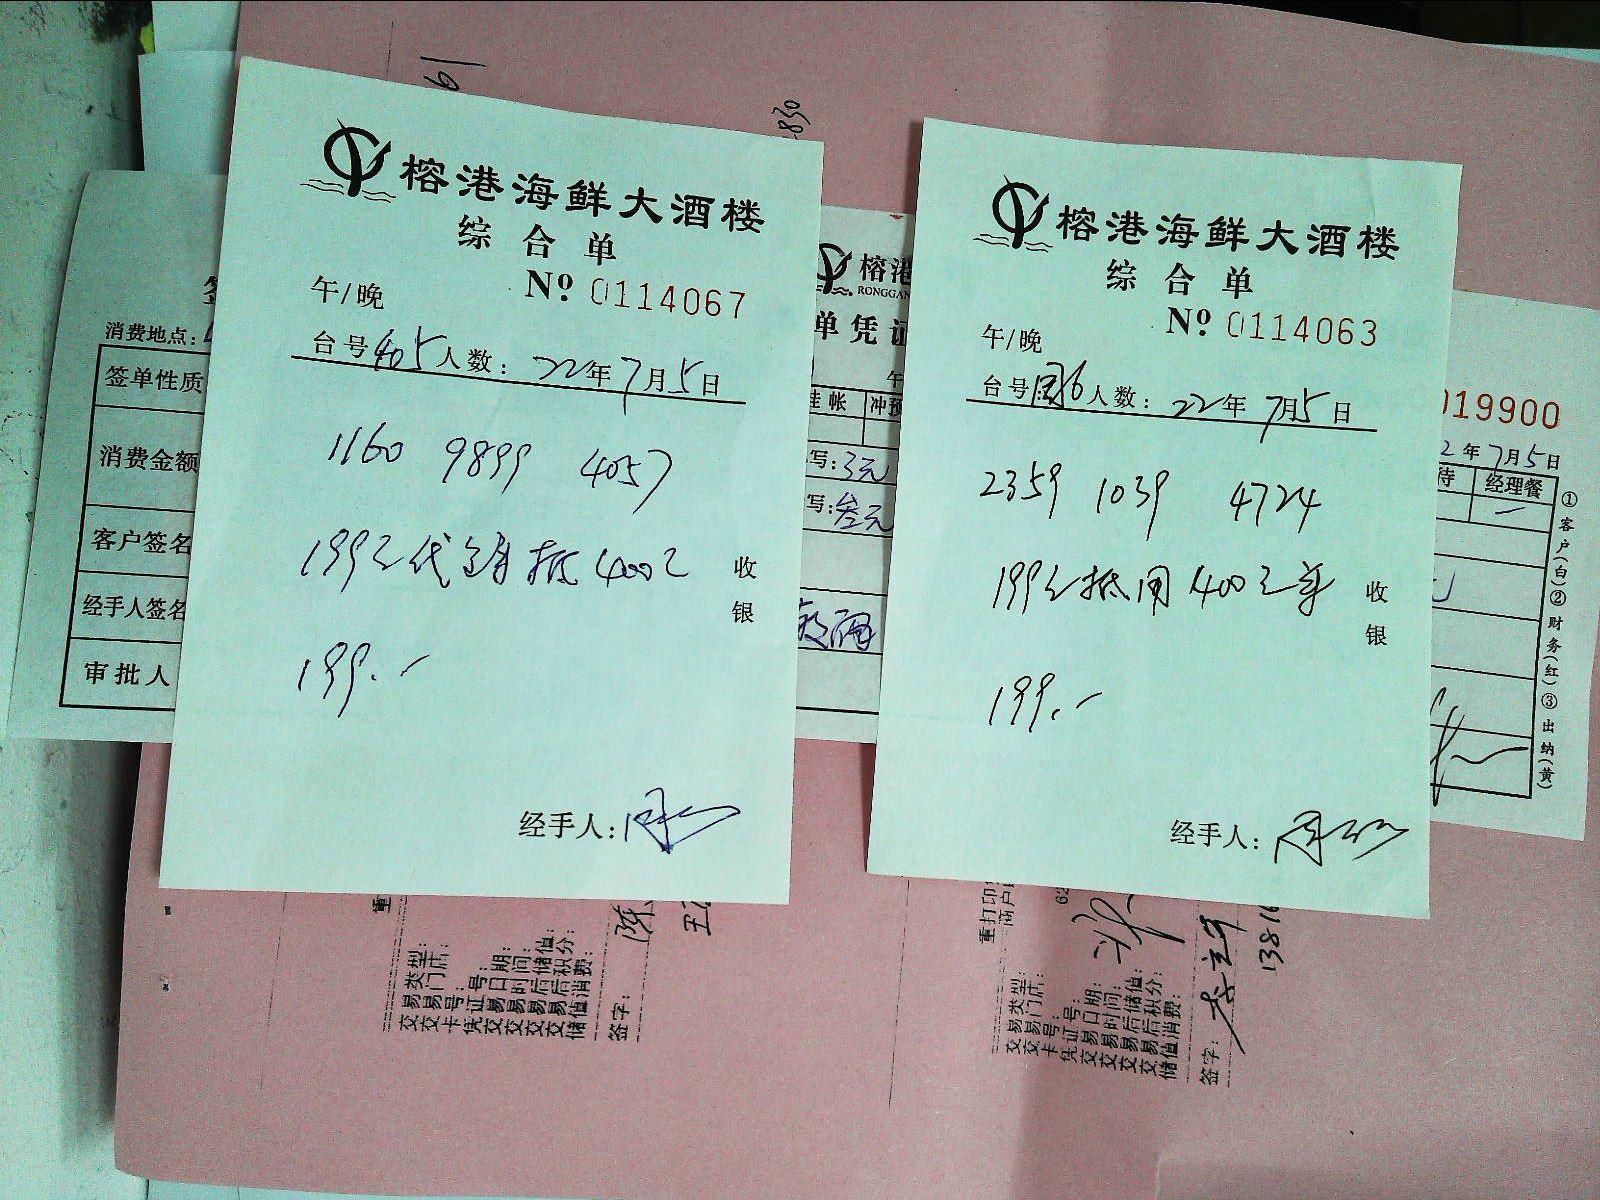 榕港海鲜大酒楼
综合单
午/晚
№ 0114067
台号405人数: 22年7月5日
1160 9899 4057
199元代金券抵400元
收银
199.-
经手人:
榕港海鲜大酒楼
综合单
午/晚
№ 0114063
台号 6人数: 22年7月5日
2359 1039 4724
199元抵用400元券
收银
199.-
经手人:
消费地点:
签单性质
消费金额
客户签名
经手人签名
审批人
榕港
RONGGAN
单凭证
午
挂帐 冲预
写:3元
写:叁元
019900
2年7月5日
待 经理餐
①客户(白)②财务(红)③出纳(黄)
61
830
交易类型:
交易门店:
卡号:
凭证号:
交易日期:
交易时间:
交易后储值:
交易后积分:
储值消费:
签字:
重打印
商户
62
交易类型:
交易门店:
卡号:
凭证号:
交易日期:
交易时间:
交易后储值:
交易后积分:
储值消费:
签字:
13816